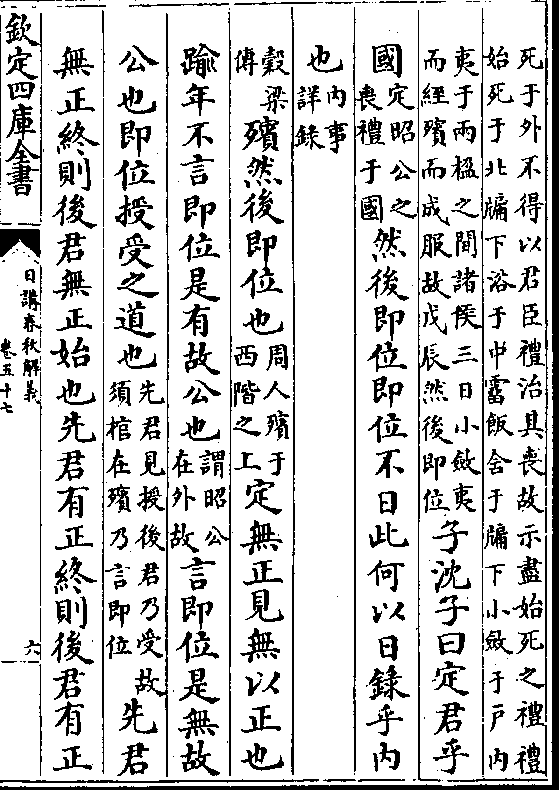 死于外不得以君臣禮治其喪故示盡始死之禮禮
始死于北牖下浴于中霤飯含于牖下小斂于戸内
夷于兩楹之間諸侯三日小斂夷
而經殯而成服故戊辰然後即位
子沈子曰定君乎
國
定昭公之
喪禮于國
然後即位即位不日此何以日錄乎内
也
内事
詳錄
穀梁
傳
殯然後即位也
周人殯于
西階之上
定無正見無以正也
踰年不言即位是有故公也
謂昭公
在外故
言即位是無故
公也即位授受之道也
先君見授後君乃受故
須棺在殯乃言即位
先君
無正終則後君無正始也先君有正終則後君有正
欽定四庫全書
日講春秋解義
卷五十七
六